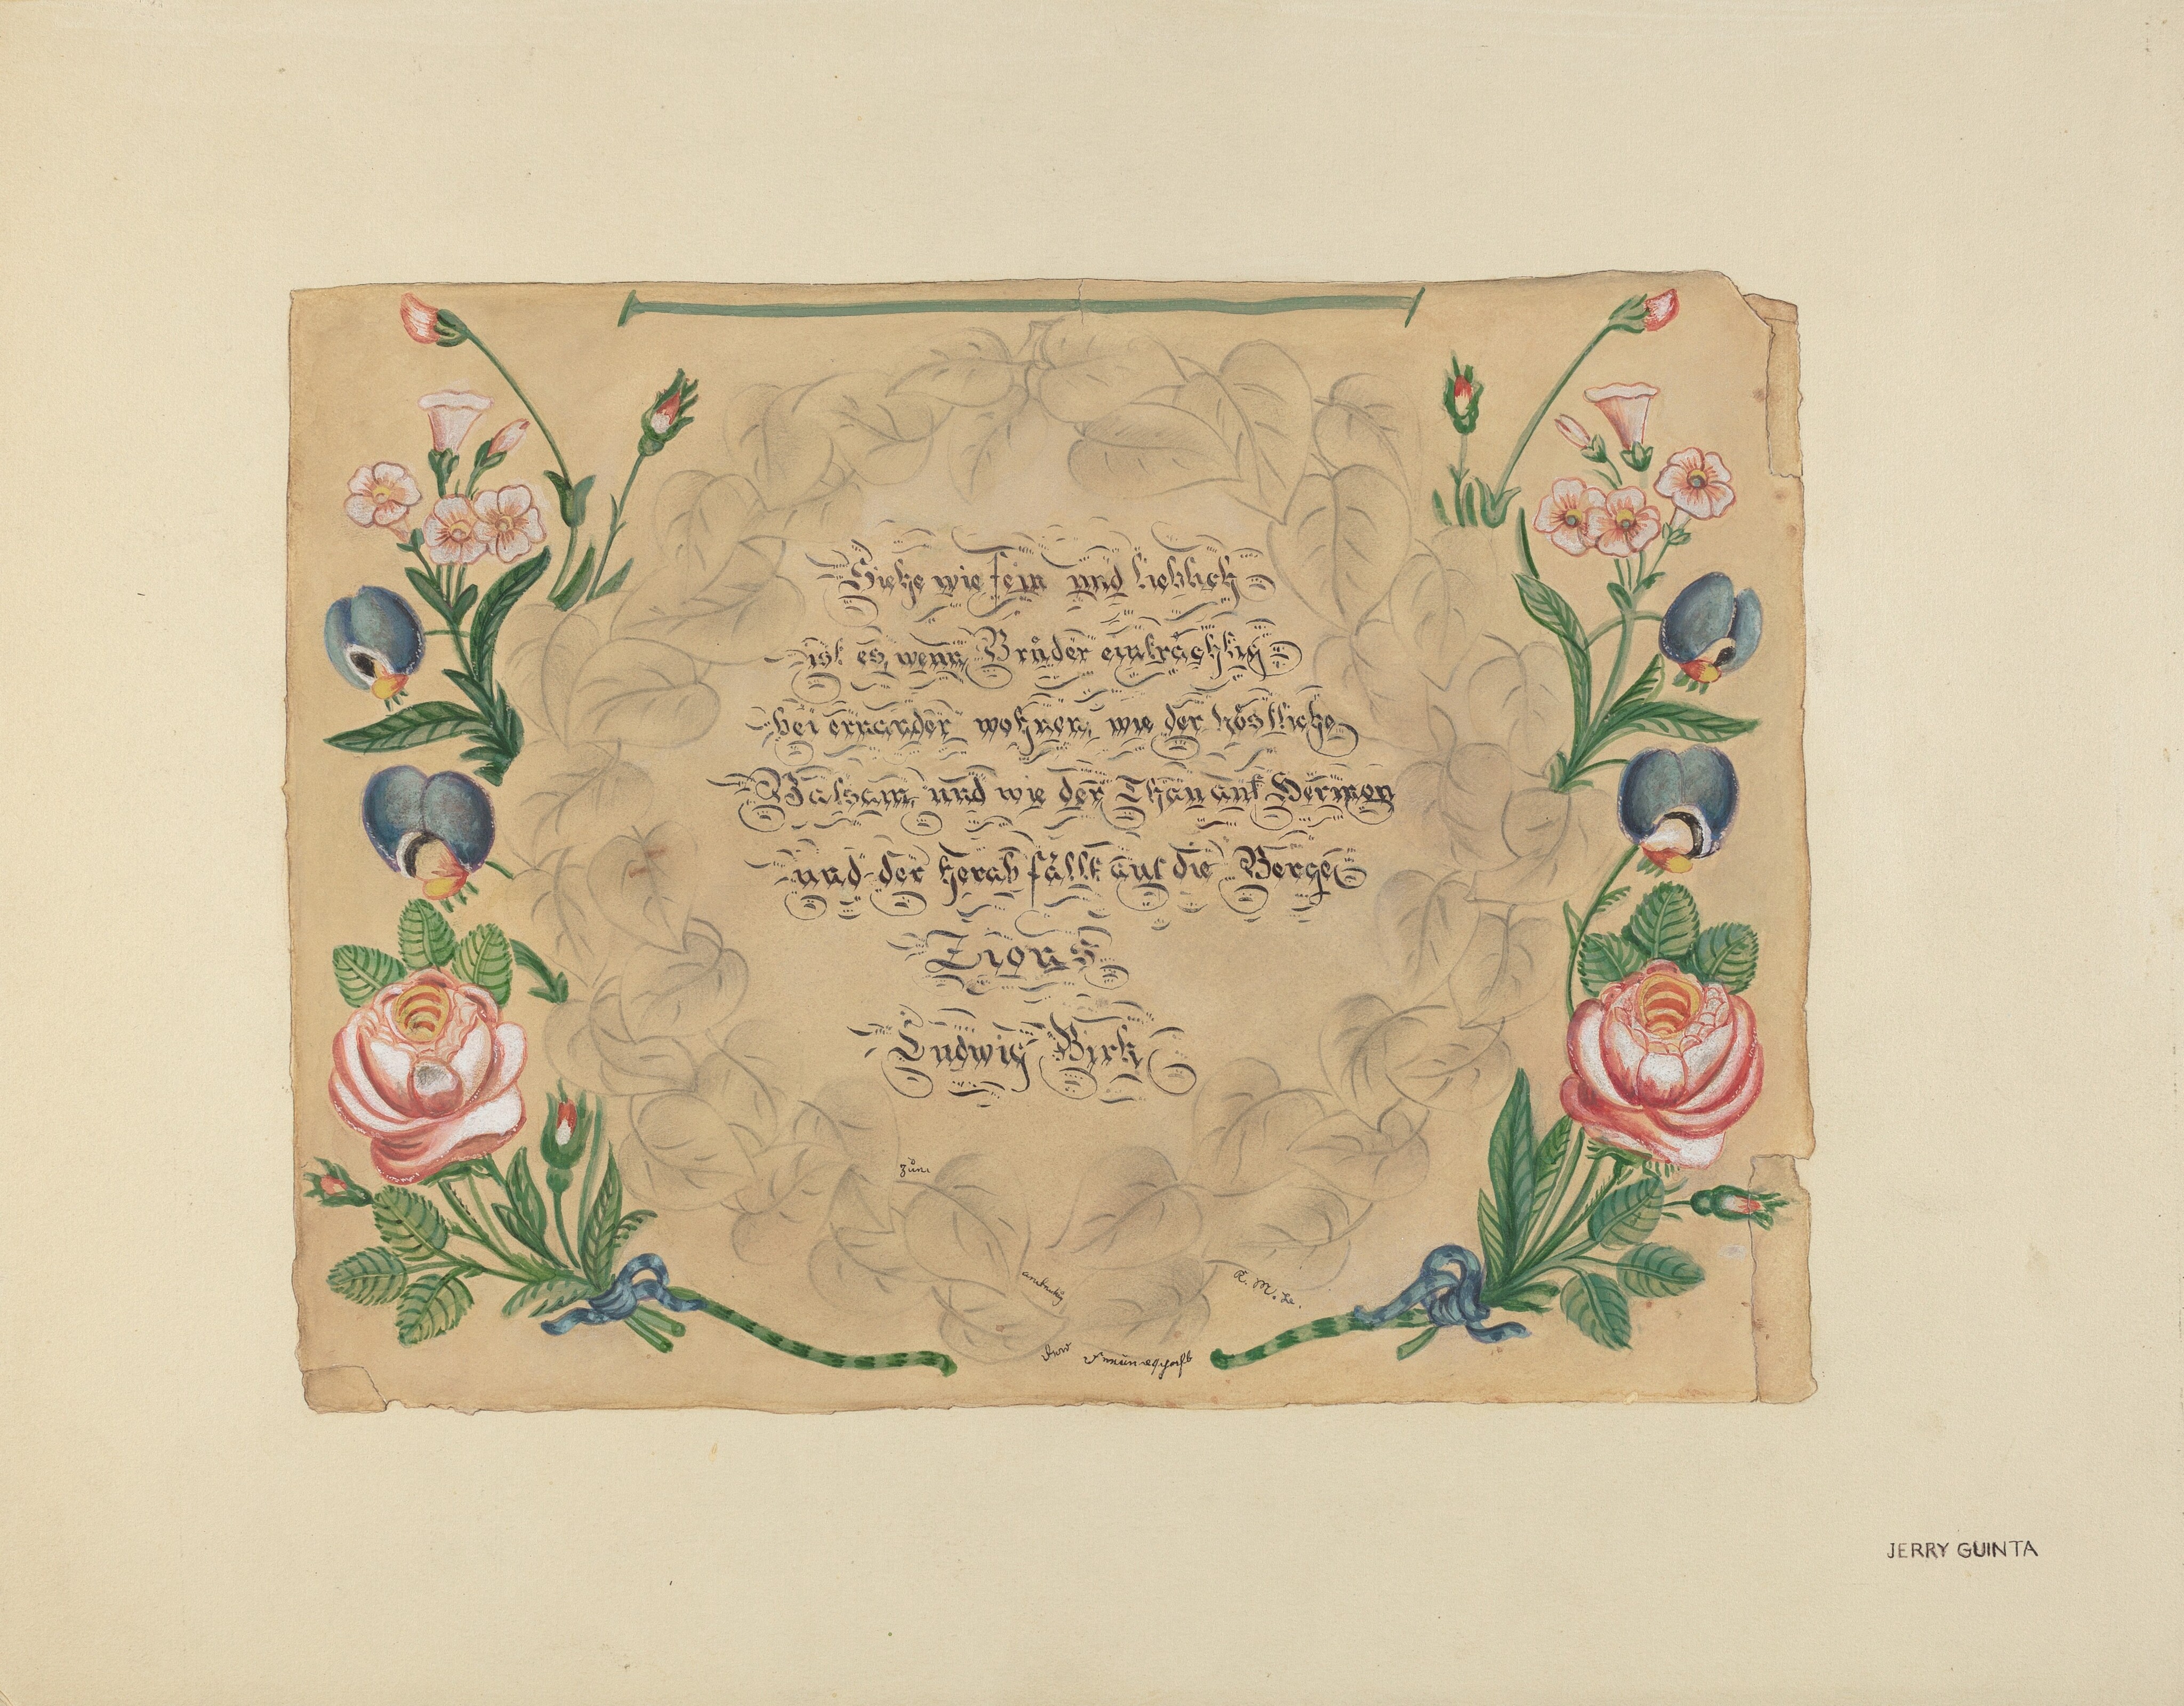 Siehe wie fein und lieblich
ist es, wenn Brüder einträchtig
bei einander wohnen, wie der köstliche
Balsam, und wie der Thau auf Hermon
und der herab fällt auf die Berge
Zions
Ludwig Birk
zum
andenken
der Freundschaft
E. M. Le.
JERRY GUINTA